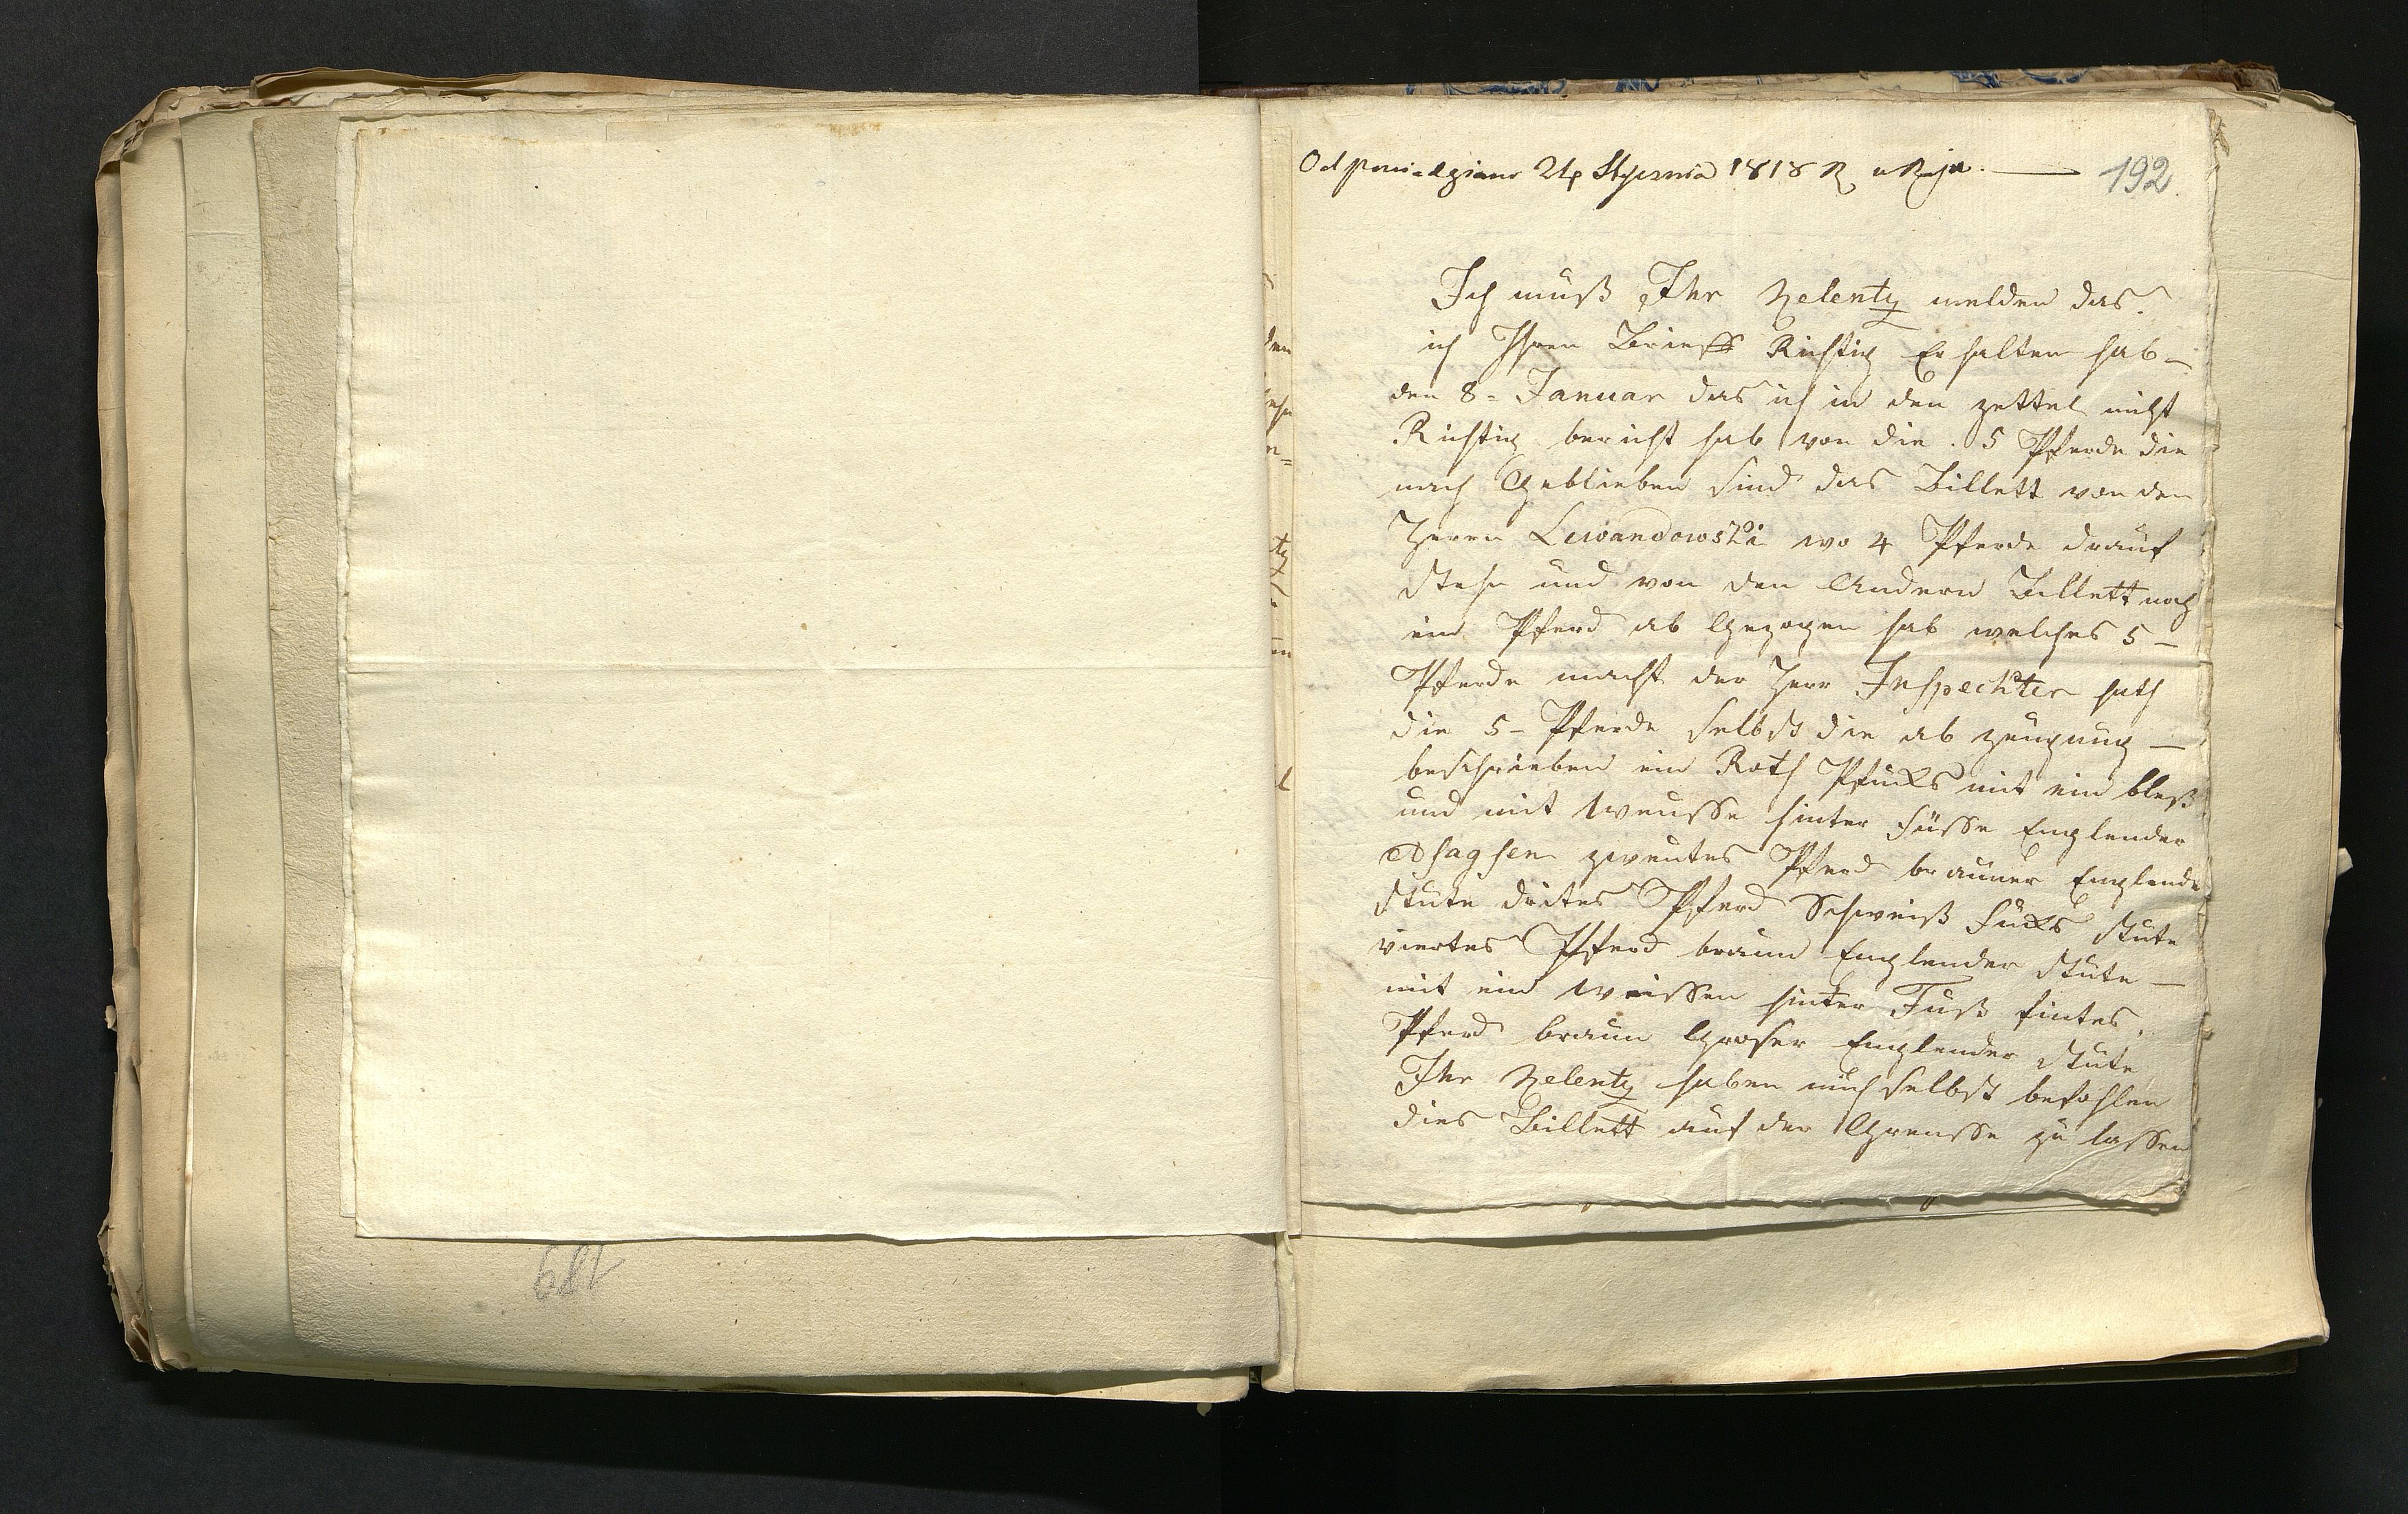 Odpowiedziano 24 Stycznia 1818 R
192
Ich muß Ihr Xelentz melden das
ich Ihren Brieff Richtig Erhalten hab –
den 8 = Januar das ich in den zettel nicht
Richtig bericht hab von die 5 Pferde die
nach Geblieben sind das Billett von den
Herrn Lewandowski wo 4 Pferde drauf
stehn und von den Andern Billett noch
ein Pferd ab Gezogen hab welches 5 –
Pferde macht der Herr Inspechter hath
die 5 – Pferde selbst die ab zeugung –
beschrieben ein Roth Pfucks mit ein bleß
und mit Weusse hinter Füsse Englender
zweutes Pferd brauner Englender
stute drites Pferd Schweiß Fucks stute
viertes Pferd braun Englender stute –
mit ein Weissen hinter Fuß fintes
Pferd braun Groser Englender stute
Ihr Xelentz haben mich selbst befohlen
dies Billett auf der Grensse zu lassen
189